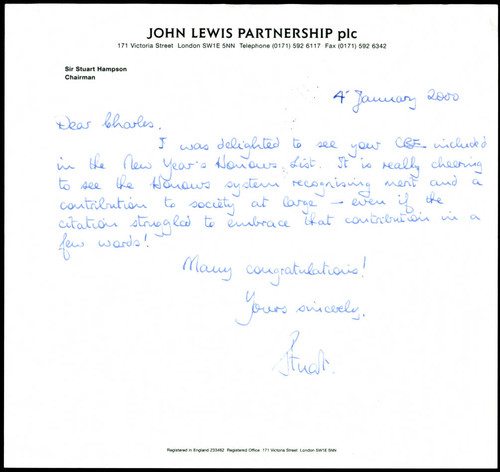 JOHN LEWIS PARTNERSHIP plc
171 Victoria Street London SW1E 5NN Telephone (0171) 592 6117 Fax (0171) 592 6342
Sir Stuart Hampson
Chairman
4 January 2000
Dear Charles,
I was delighted to see your CBE included
in the New Year's Honours List. It is really cheering
to see the Honours system recognising merit and a
contribution to society at large – even if the
citation struggled to embrace that contribution in a
few words!
Many congratulations!
Yours sincerely,
Stuart.
Registered in England 233462 Registered Office 171 Victoria Street London SW1E 5NN